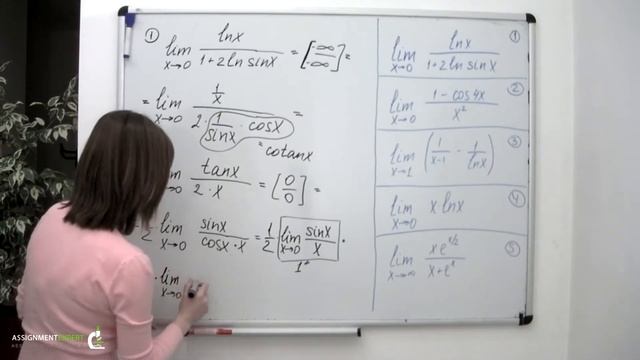 ① lim x→0 lnx / 1+2 ln sinx = [-∞/-∞] =
= lim x→0 1/x / 2 · 1/sinx · cosx =
= cotanx
lim x→0 tanx / 2·x = [0/0] =
1/2 lim x→0 sinx / cosx·x = 1/2 lim x→0 sinx / x ·
1
· lim x→0
lim x→0 lnx / 1+2 ln sinx ①
lim x→0 1-cos4x / x² ②
lim x→1 (1/x-1 - 1/lnx) ③
lim x→0 x lnx ④
lim x→∞ x e^x/2 / x+e^x ⑤
ASSIGNMENT EXPERT